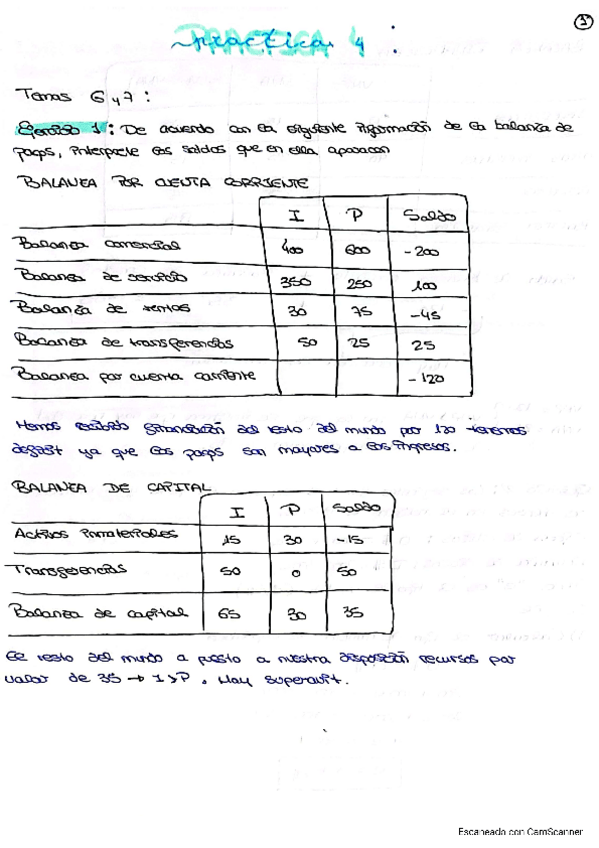 1
PRACTICA 4:
Temas 6 y 7:
Ejercicio 1: De acuerdo con la siguiente información de la balanza de
pagos, interprete los saldos que en ella aparecen
BALANZA POR CUENTA CORRIENTE
I P Saldo
Balanza comercial 400 600 -200
Balanza de servicios 350 250 100
Balanza de rentas 30 75 -45
Balanza de transferencias 50 25 25
Balanza por cuenta corriente -120
Hemos recibido financiación del resto del mundo por 120 tenemos
deficit ya que los pagos son mayores a los ingresos.
BALANZA DE CAPITAL
I P Saldo
Activos inmateriales 15 30 -15
Transferencias 50 0 50
Balanza de capital 65 30 35
El resto del mundo a puesto a nuestra disposición recursos por
valor de 35 → I>P. Hay superavit.
Escaneado con CamScanner